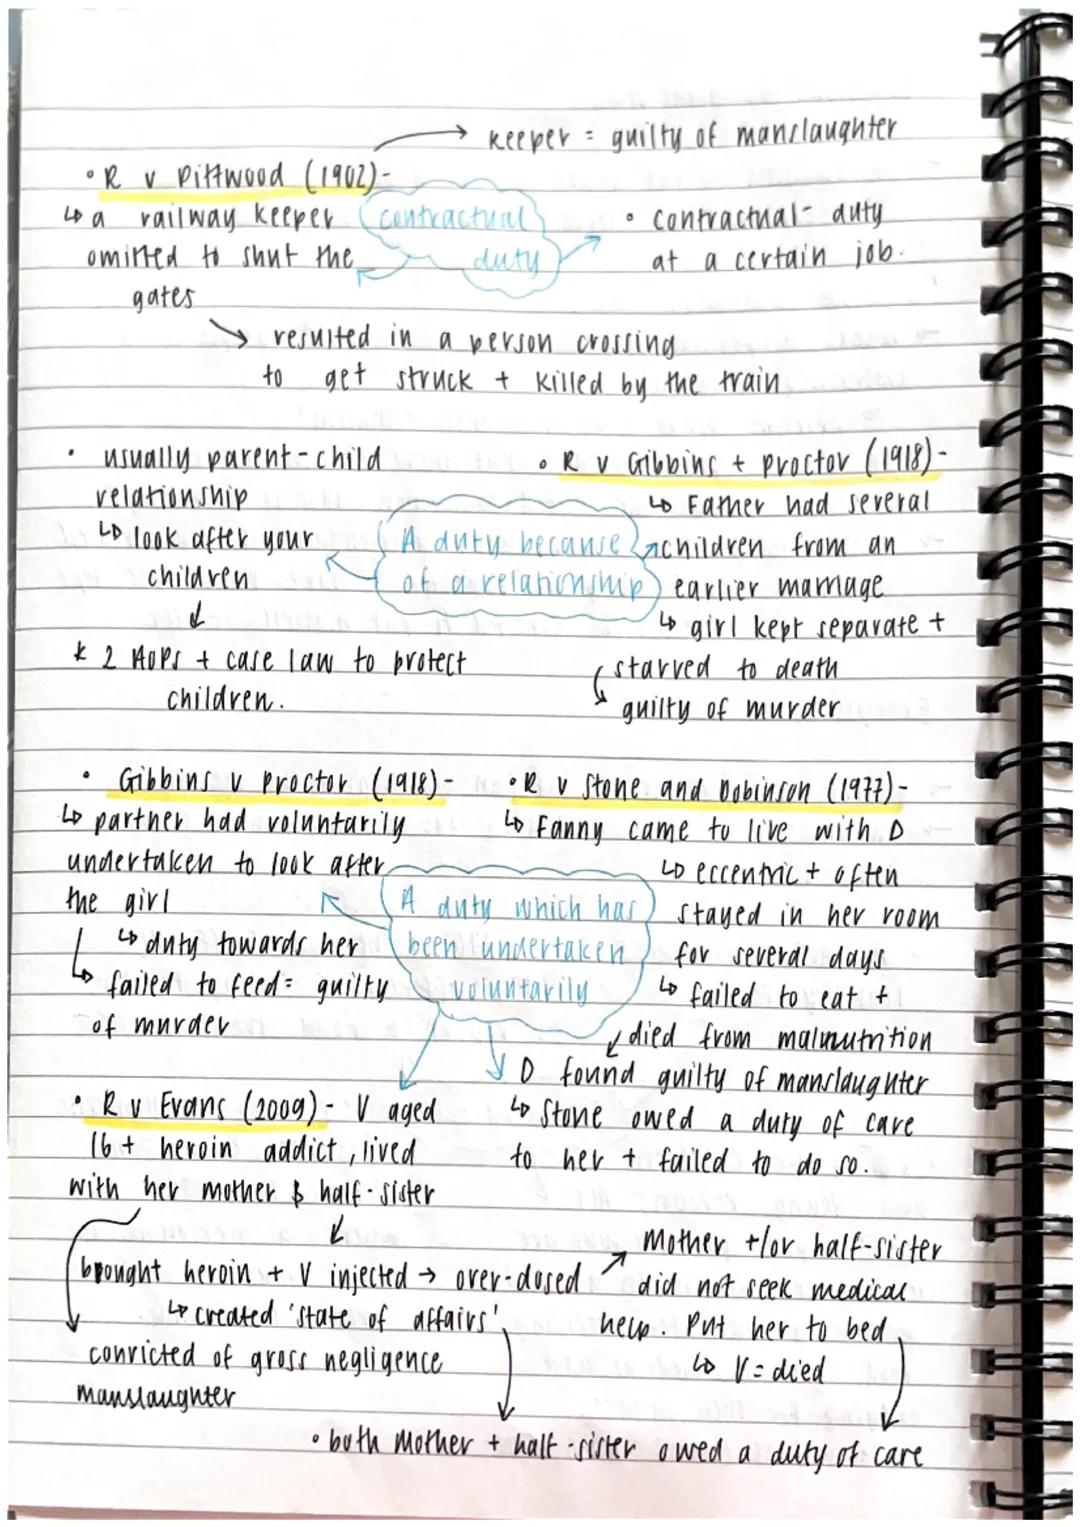 → keeper = guilty of manslaughter
• R v Pittwood (1902)-
↳ a railway keeper
omitted to shut the
gates
contractual
duty
• contractual- duty
at a certain job.
→ resulted in a person crossing
to get struck + killed by the train
• usually parent-child
relationship
↳ look after your
children
↓
* 2 AOPs + case law to protect
children.
A duty because
of a relationship
• R v Gibbins + Proctor (1918)-
↳ Father had several
children from an
earlier marriage
↳ girl kept separate +
starved to death
guilty of murder
• Gibbins v Proctor (1918)-
↳ partner had voluntarily
undertaken to look after
the girl
↳ duty towards her
↳ failed to feed= guilty
of murder
A duty which has
been undertaken
voluntarily
• R v Stone and Dobinson (1977)-
↳ Fanny came to live with D
↳ eccentric + often
stayed in her room
for several days
↳ failed to eat +
died from malnutrition
D found guilty of manslaughter
↳ Stone owed a duty of care
to her + failed to do so.
• R v Evans (2009)- V aged
16 + heroin addict, lived
with her mother & half-sister
brought heroin + V injected → over-dosed
↳ created 'state of affairs'
convicted of gross negligence
manslaughter
Mother +/or half-sister
did not seek medical
help. Put her to bed
↳ V = died
• both Mother + half-sister owed a duty of care